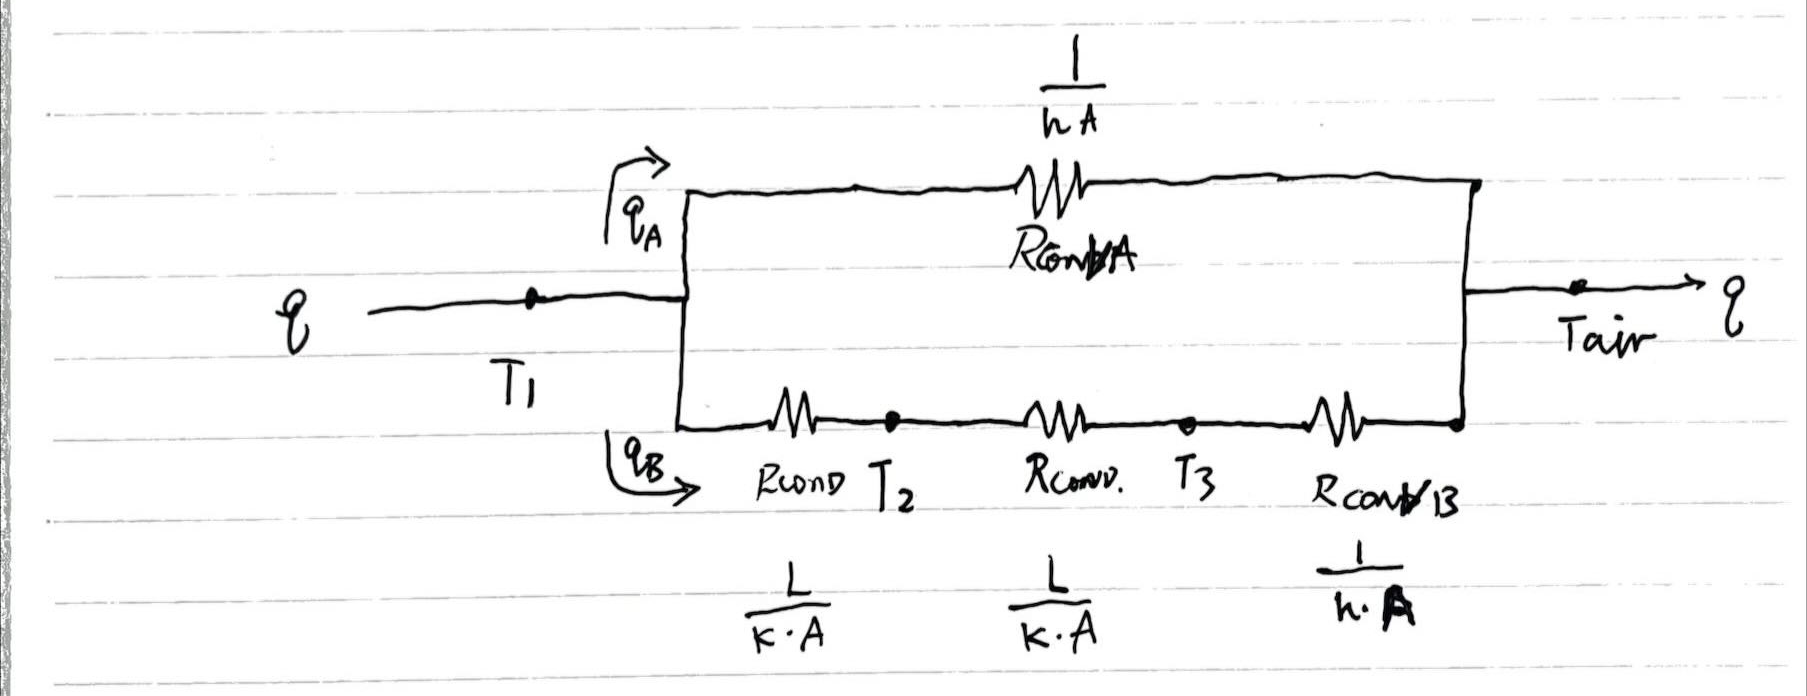 1
hA
qA
RconvA
q
q
Tair
T1
qB
Rcond T2 Rcond. T3 RconvB
L
K·A
L
K·A
1
h·A